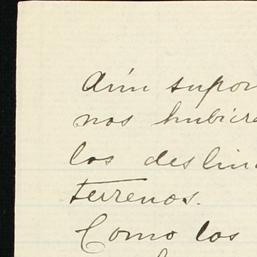 Aún supon
nos hubiera
los deslin
terrenos.
Como los